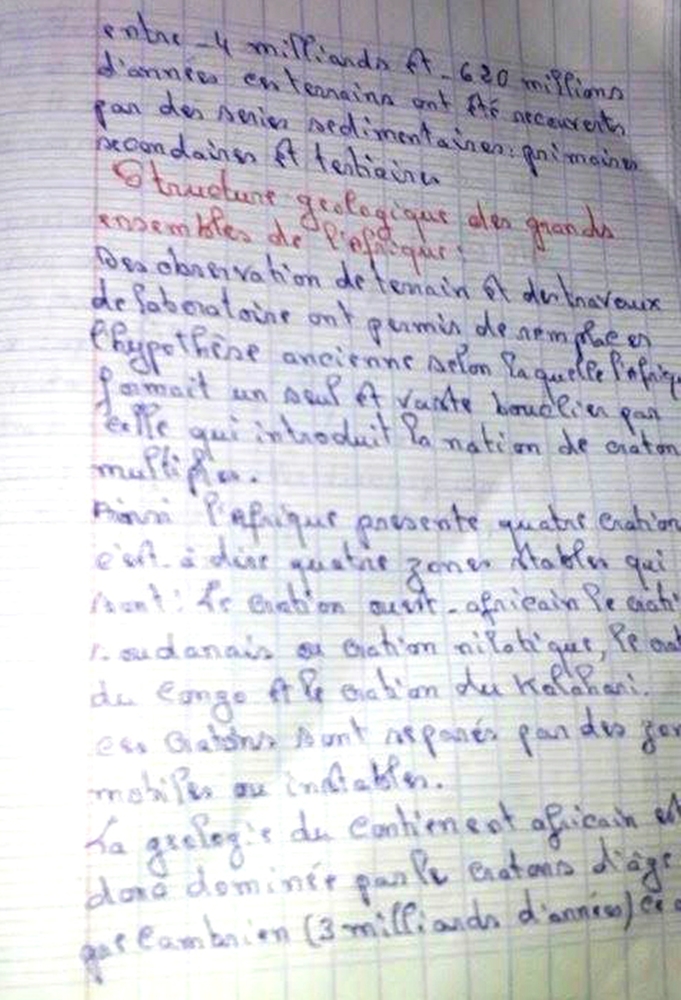 entre -4 milliards et -620 millions
d'années ces terrains ont été recouverts
par des series sedimentaires: primaires
secondaires et tertiaires
Structure geologique des grands
ensembles de l'afrique:
Des observation de terrain et des travaux
de laboratoire ont permis de remplacer
l'hypothèse ancienne selon laquelle l'afriqu
formait un seul et vaste bouclier par
celle qui introduit la nation de craton
multiples.
Ainsi l'afrique presente quatre cration
c'est-à dire quatre zones stables qui
sont: Le cration ouest-africain le crati
soudanais ou cration nilotique, le crat
du Congo et le cration du Kalahari.
ces cratons sont separés par des zon
mobiles ou instables.
La geologie du continent africain est
donc dominée par le cratons d'âge
(3 milliards d'années) ce